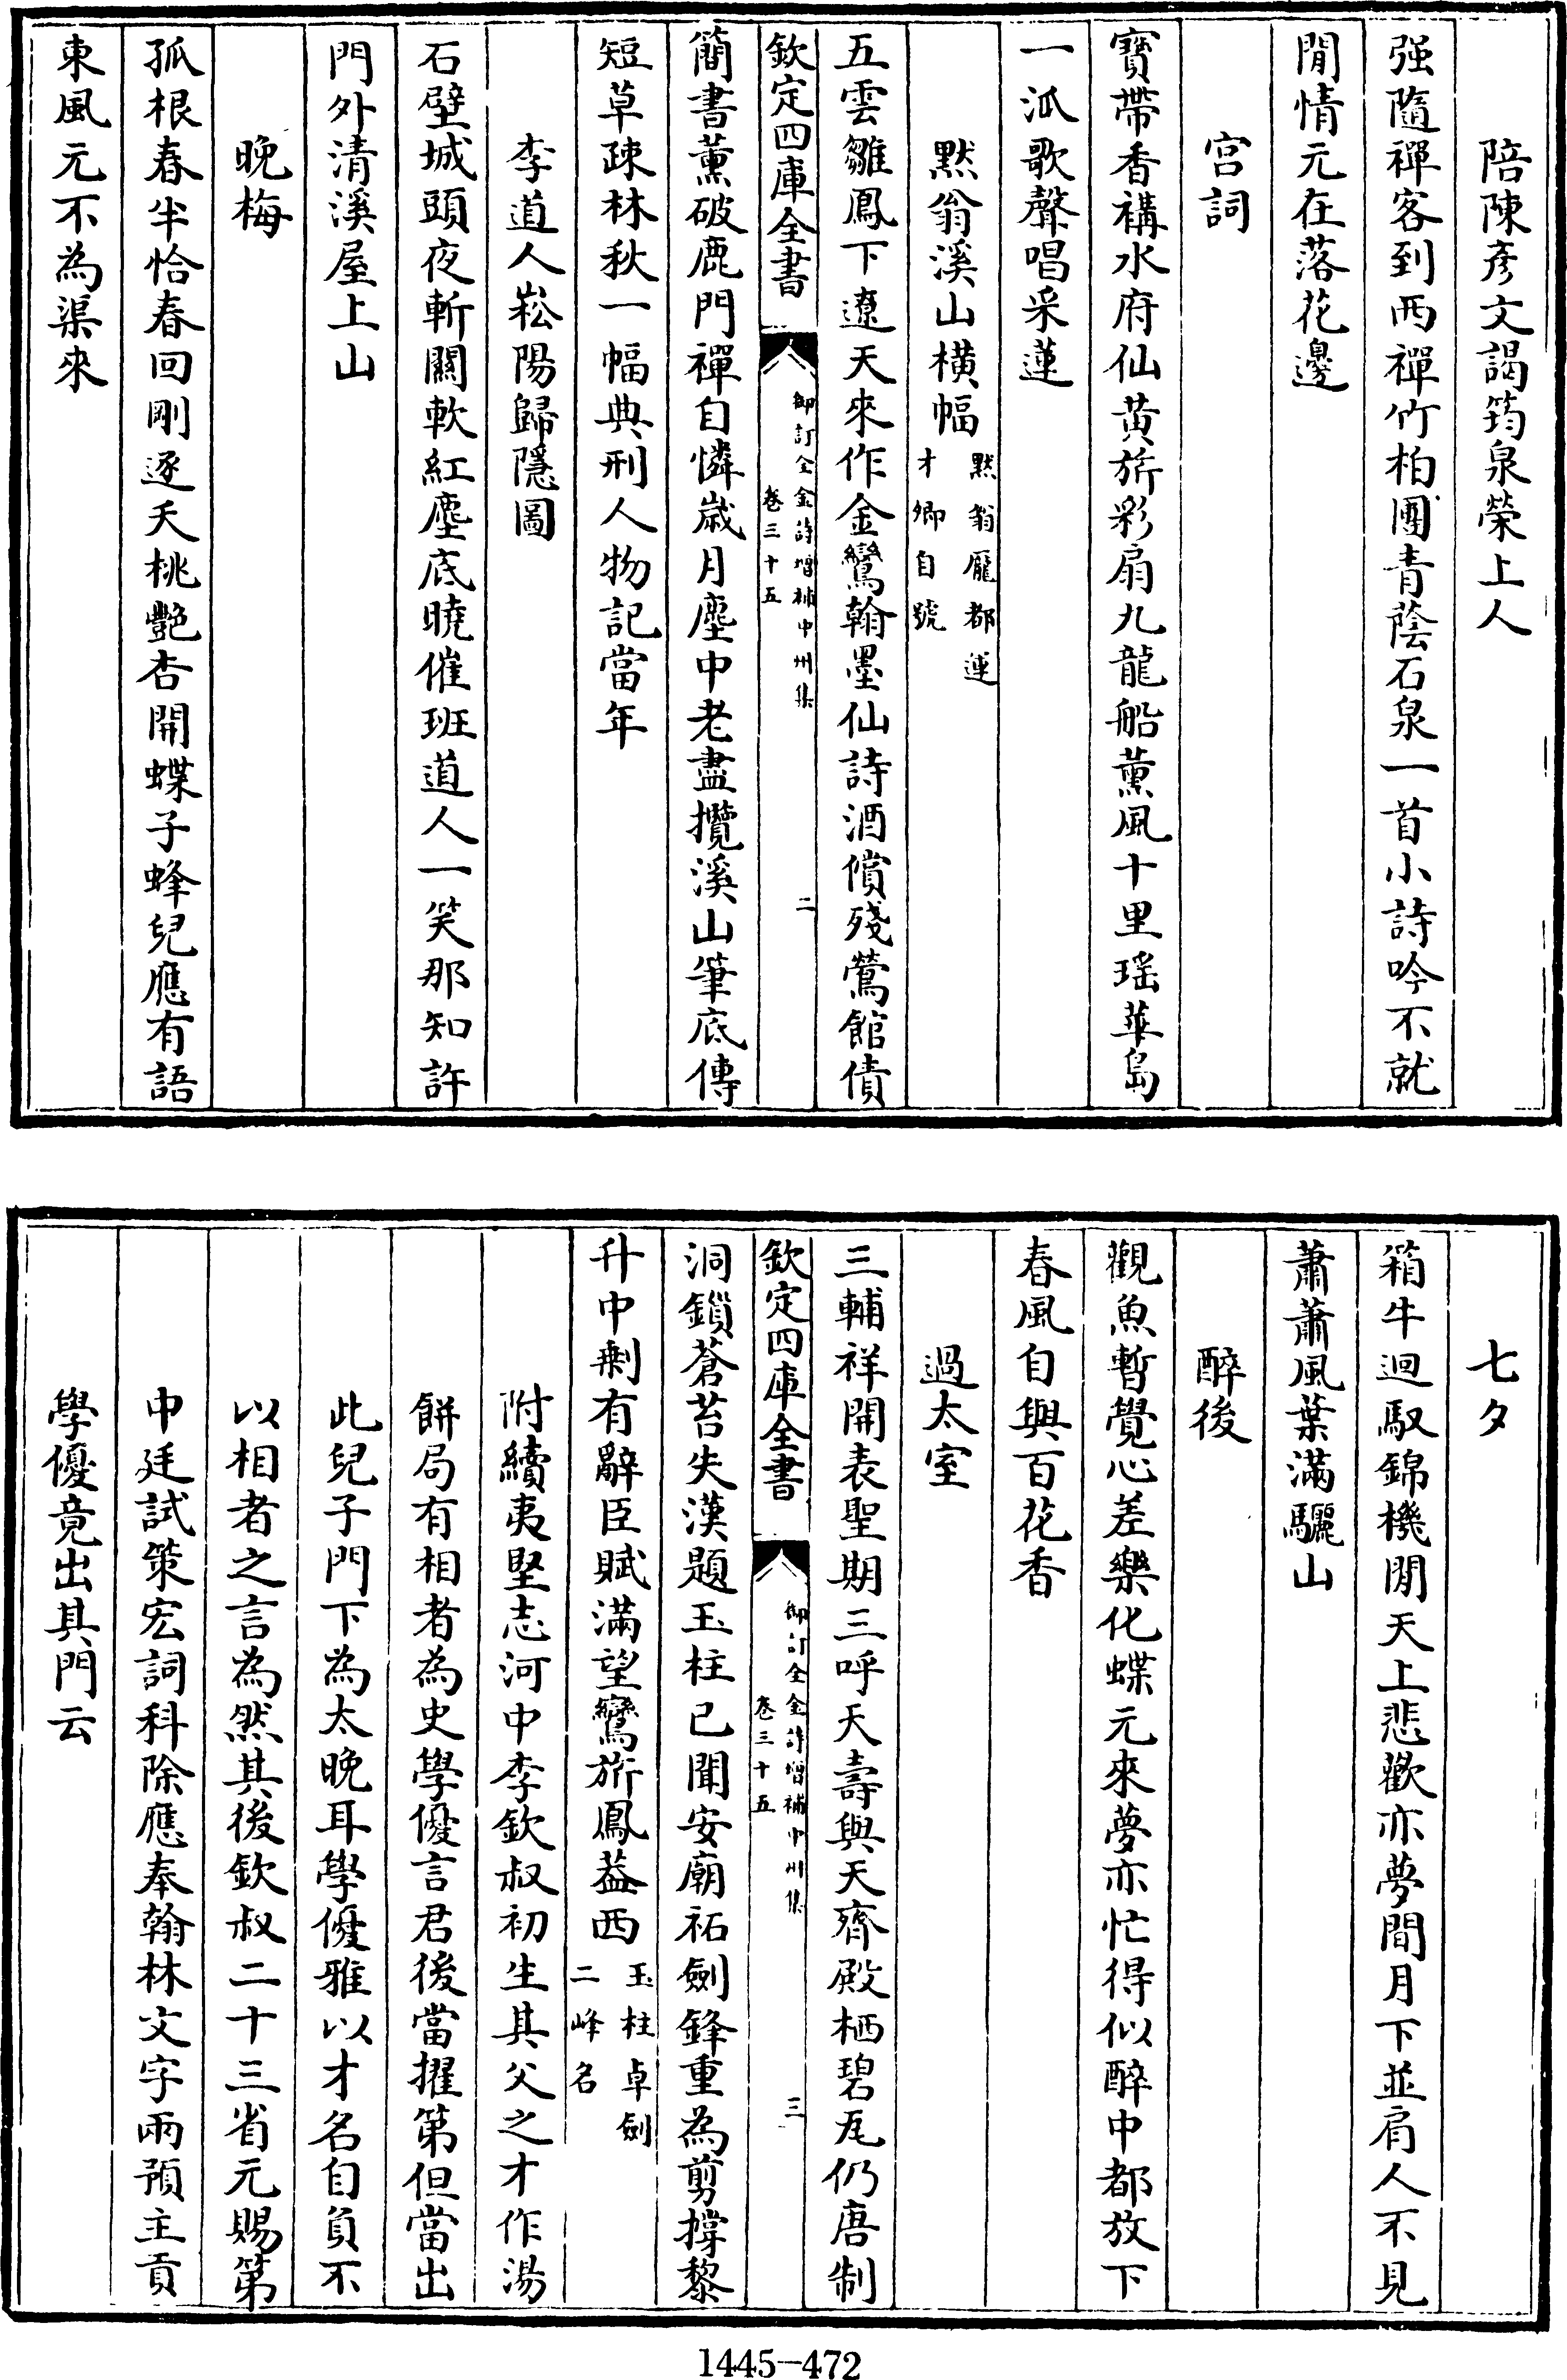 陪陳彥文謁筠泉榮上人
强隨禪客到西禪竹柏團青蔭石泉一首小詩吟不就
閒情元在落花邊
宫詞
寳帶香褠水府仙黄旂彩扇九龍船薰風十里瑶華島
一派歌聲唱采蓮
黙翁溪山横幅黙翁龎都運才卿自號
五雲雛鳳下遼天來作金鸞翰墨仙詩酒償殘鶯館債
欽定四庫全書
御訂全金詩增補中州集
卷三十五
二
簡書薰破鹿門禪自憐歲月塵中老盡攬溪山筆底傳
短草疎林秋一幅典刑人物記當年
李道人崧陽歸隱圖
石壁城頭夜斬關軟紅塵底曉催班道人一笑那知許
門外清溪屋上山
晚梅
孤根春半恰春回剛逐夭桃艶杏開蝶子蜂兒應有語
東風元不為渠來
七夕
箱牛迴馭錦機閒天上悲歡亦夢間月下並肩人不見
蕭蕭風葉滿驪山
醉後
觀魚暫覺心差樂化蝶元來夢亦忙得似醉中都放下
春風自與百花香
過太室
三輔祥開表聖期三呼天壽與天齊殿栖碧瓦仍唐制
欽定四庫全書
御訂全金詩增補中州集
卷三十五
三
洞鎻蒼苔失漢題玉柱已聞安廟祏劍鋒重為剪撐黎
升中剰有辭臣賦滿望鸞旂鳳葢西玉柱卓劍二峰名
附續夷堅志河中李欽叔初生其父之才作湯
餅局有相者為史學優言君後當擢第但當出
此兒子門下為太晚耳學優雅以才名自負不
以相者之言為然其後欽叔二十三省元賜第
中廷試策宏詞科除應奉翰林文字兩預主貢
學優竟出其門云
1445-472